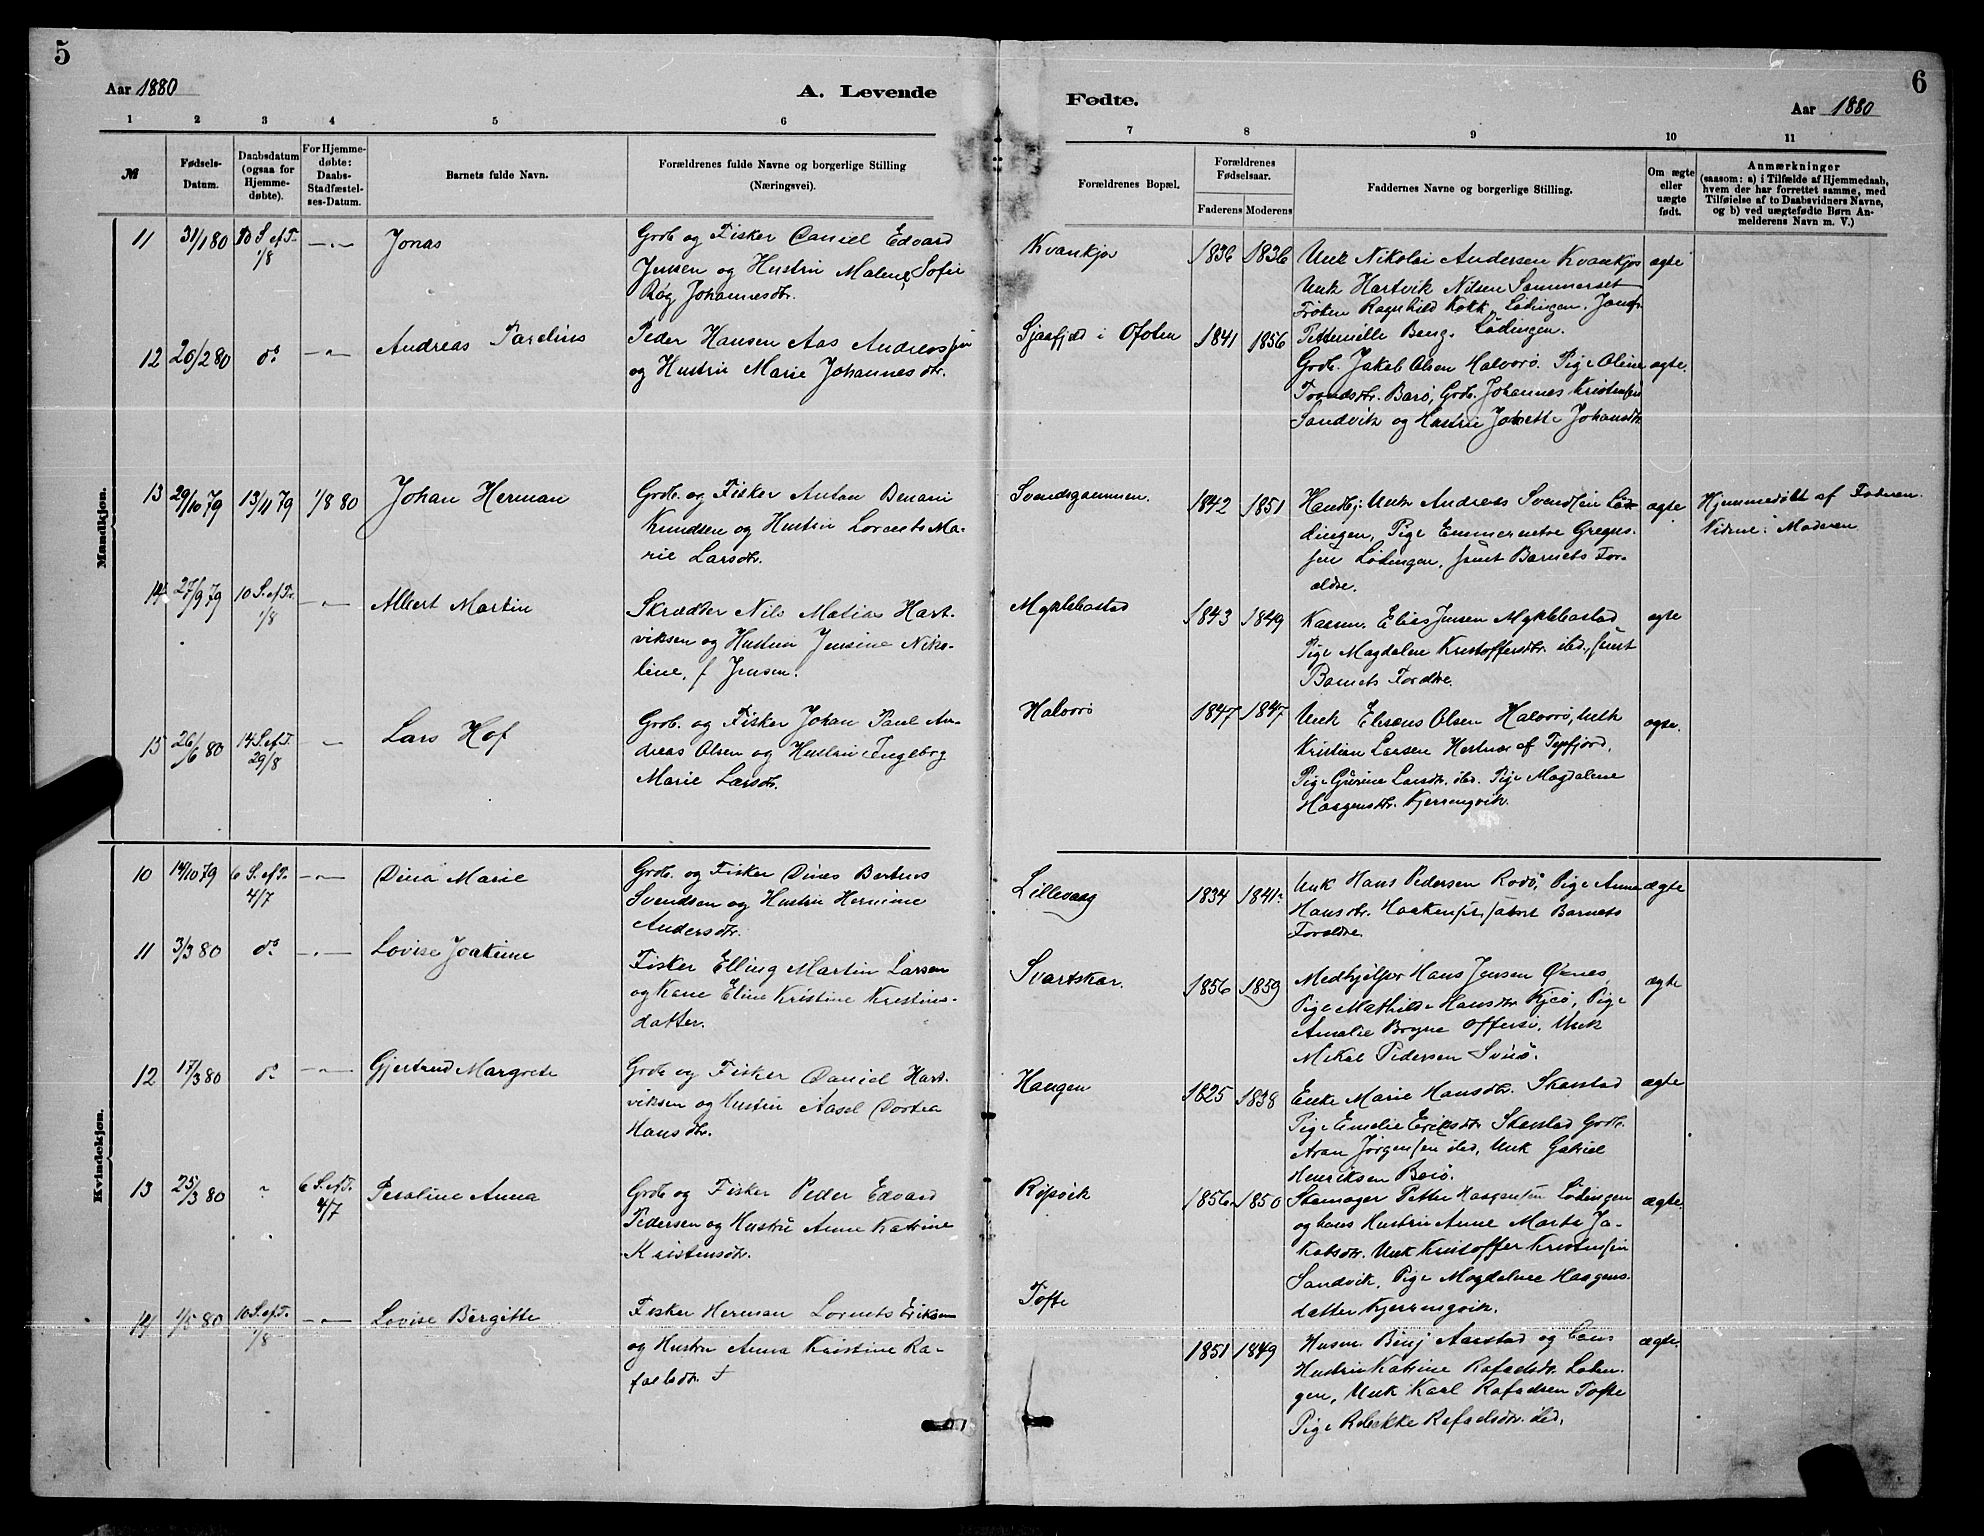 5
Aar 1880
A. Levende
1 2 3 4 5 6
№
Fødsels-
Datum.
Daabsdatum
(ogsaa for
Hjemme-
døbte).
For Hjemme-
døbte:
Daabs-
Stadfæstel-
ses-Datum.
Barnets fulde Navn.
Forældrenes fulde Navne og borgerlige Stilling
(Næringsvei).
Mandkjøn.
11 31/1 80 10 S. ef T. 1/8 -"- Jonas
Grdb. og Fisker Daniel Edvard
Jensen og Hustru Malene Sofie
Røg Johannesdtr.
12 20/2 80 do -"- Andreas Parelius
Peder Hansen Aas
og Hustru Marie Johannesdtr.
13 29/10 79 13/11 79 1/8 80 Johan Herman
Grdb. og Fisker Anton Benoni
Knudsen og Hustru Lorents Ma-
rie Larsdtr.
14 27/9 79 10 S. ef Tr. 1/8 -"- Albert Martin
Skrædder Nils Matias Hart-
viksen og Hustru Jensine Niko-
line, f Jensen.
15 26/6 80 14 S. ef T. 29/8 - Lars Hof
Grdb. og Fisker Johan Paul An-
dreas Olsen og Hustru Ingeborg
Marie Larsdtr.
Kvindekjøn.
10 14/10 79 6 S. ef T. 4/7 -"- Dina Marie
Grdb. og Fisker Dines Bertius
Svendsen og Hustru Hernine
Andersdtr.
11 3/3 80 do -"- Lovise Joakime
Fisker Elling Martin Larsen
og Kone Eline Kristine Kristens-
datter.
12 17/3 80 do -"- Gjertrud Margrete
Grdb og Fisker Daniel Hart-
viksen og Hustru Aasel Dortea
Hansdtr.
13 25/3 80 " 6 S. ef T. 4/7 Peroline Anna
Grdb og Fisker Peder Edvard
Pedersen og Hustru Anne Katrine
Kristensdtr.
14 1/5 80 10 S. ef T. 1/8 -"- Lovise Bergitte
Fisker Herman Lorents Eriksen
og Hustru Anna Kristine Ra-
faelsdtr.
6
Fødte.
Aar 1880
7 8 9 10 11
Forældrenes Bopæl.
Forældrenes
Fødselsaar.
Faderens Moderens
Faddernes Navne og borgerlige Stilling.
Om ægte
eller
uægte
født.
Anmærkninger
(saasom: a) i Tilfælde af Hjemmedaab,
hvem der har forrettet samme, med
Tilføielse af to Daabsvidners Navne,
og b) ved uægtefødte Børn An-
melderens Navn m. V.)
Kvankjos 1836 1836
Unk Nikolai Andersen Kvankjos ægte
Unk Hartvik Nilsen Sommerset
Frøken Ragnhild Kokk Lødingen. Jomfr.
Petternille Berg. Lødingen.
i Ofoten 1841 1856
Grdb. Jakob Olsen Halvorø. Pige Oline ægte.
Trondsdtr. Barø, Grdb. Johannes Kristensen
Sandvik og Hustru Johansdtr
Svendsgammen. 1842 1851
Handelsbetj: Unk Andreas Svendsen Lø- ægte
dingen, Pige Emmerentse Gregus-
sen Lødingen, samt Barnets For-
ældre.
Hjemmedøbt af Faderen.
Vidne: Moderen
Myklebostad 1843 1849
Elias Jensen Myklebostad ægte
Pige Magdalene Kristoffersdtr. ibd., samt
Barnets Forældre.
Halvorø 1847 1847
Unk Eliseus Olsen Halvorø, Unk ægte.
Kristian Larsen af Tysfjord,
Pige Gurine Larsdtr. ibd. Pige Magdalene
Haagensdtr. Kjerringvik.
Lillevaag 1834 1841
Unk Hans Pedersen Rodø, Pige Anne ægte
Hansdtr. samt Barnets
Forældre
Svartskar. 1856 1859
Medhjelper Hans Jensen Øxnes, ægte
Pige Mathilde Hansdtr Kjeø, Pige
Amalie Bryne Offersø, Unk
Mikal Pedersen Svinø.
Haugen 1825 1838
Enke Marie Hansdtr. Skarstad ægte
Pige Emelie Eriksdtr Skarstad Grdb.
Aron Jørgensen ibd, Unk Gabriel
Henriksen Barø.
Røpsvik 1856 1850
Petter Haagensen Lødingen ægte.
og hans Hustru Anne Marta Ja-
kobsdtr. Unk Kristoffer Kristensen
Sandvik, Pige Magdalene Haagens-
datter Kjerringvik.
Tofte 1851 1849
Husm. Benj Aarstad og Hans ægte.
Hustru Katrine Rafaelsdtr. Lødin-
gen, Unk Karl Rafaelsen Tofte
Pige Rebekke Rafaelsdtr. ibd.